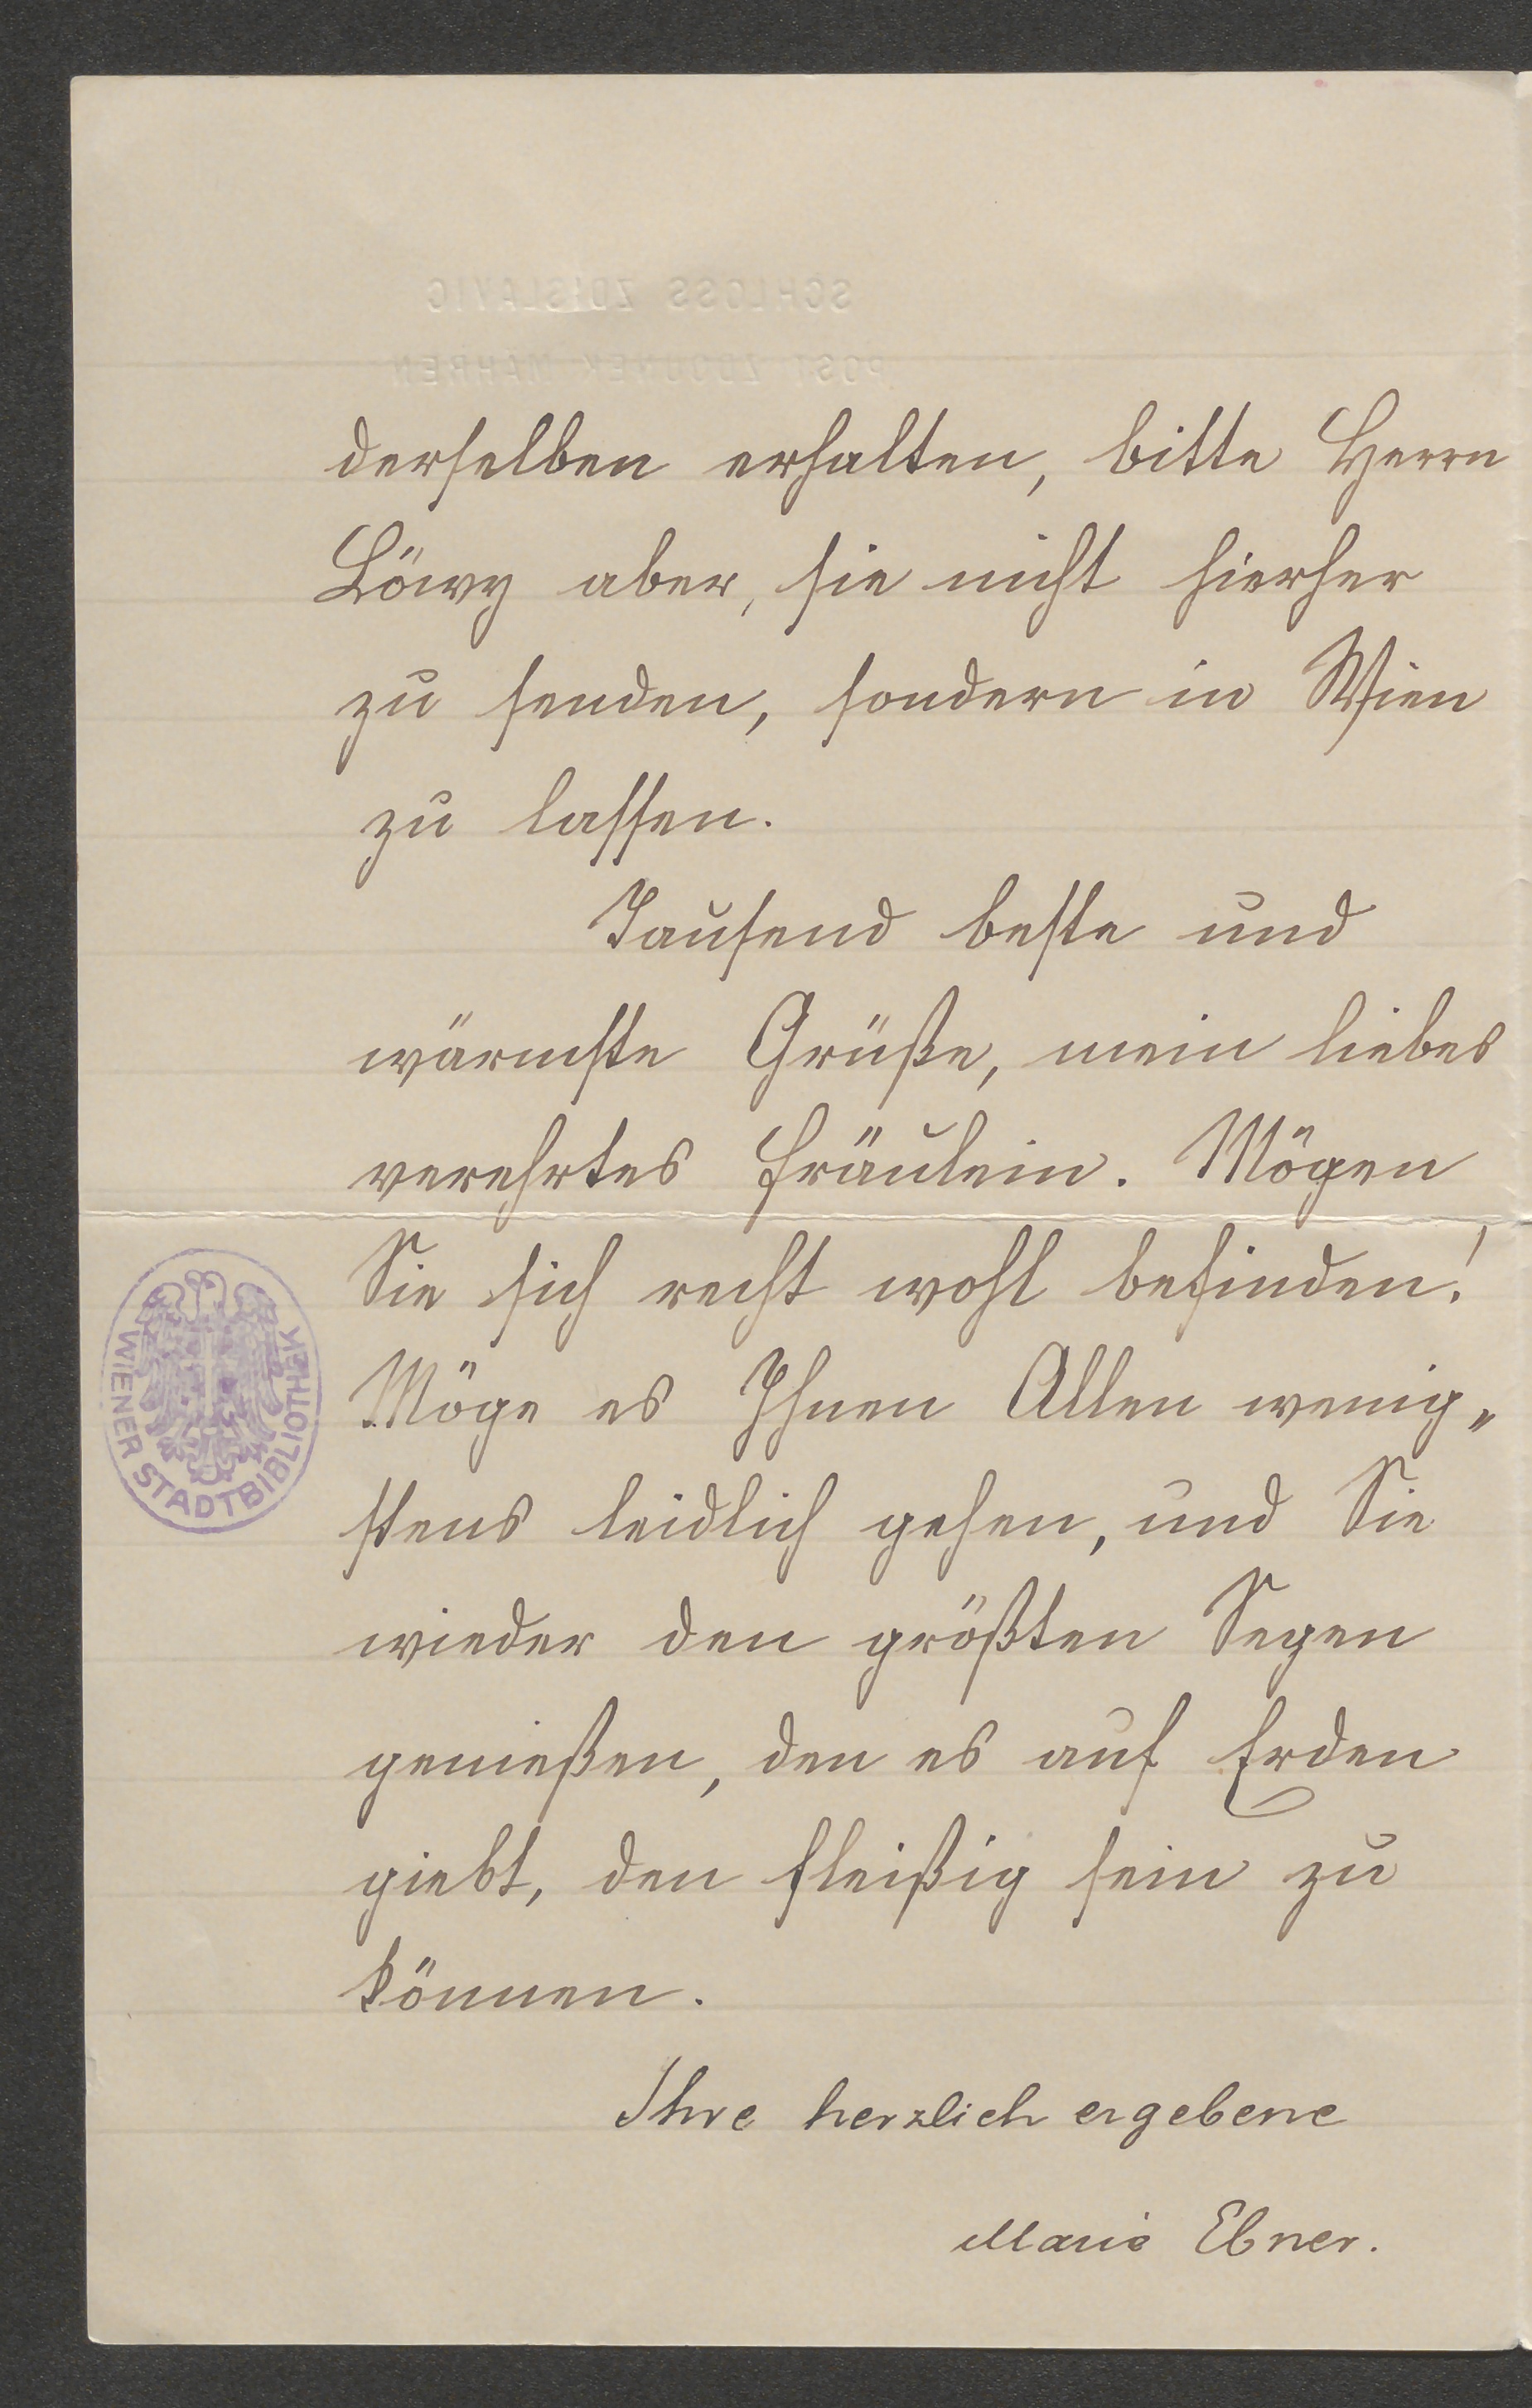 SCHLOSS ZDISLAVIC
POST ZDOUNEK MÄHREN
derselben erhalten, bitte Herrn
Löwy aber, sie nicht hierher
zu senden, sondern in Wien
zu lassen.
Tausend beste und
wärmste Grüße, mein liebes
verehrtes Fräulein. Mögen
Sie sich recht wohl befinden!
Möge es Ihnen Allen wenig„
stens leidlich gehen, und Sie
wieder den größten Segen
genießen, den es auf Erden
giebt, den fleißig sein zu
können.
Ihre herzlich ergebene
Marie Ebner.
WIENER STADTBIBLIOTHEK